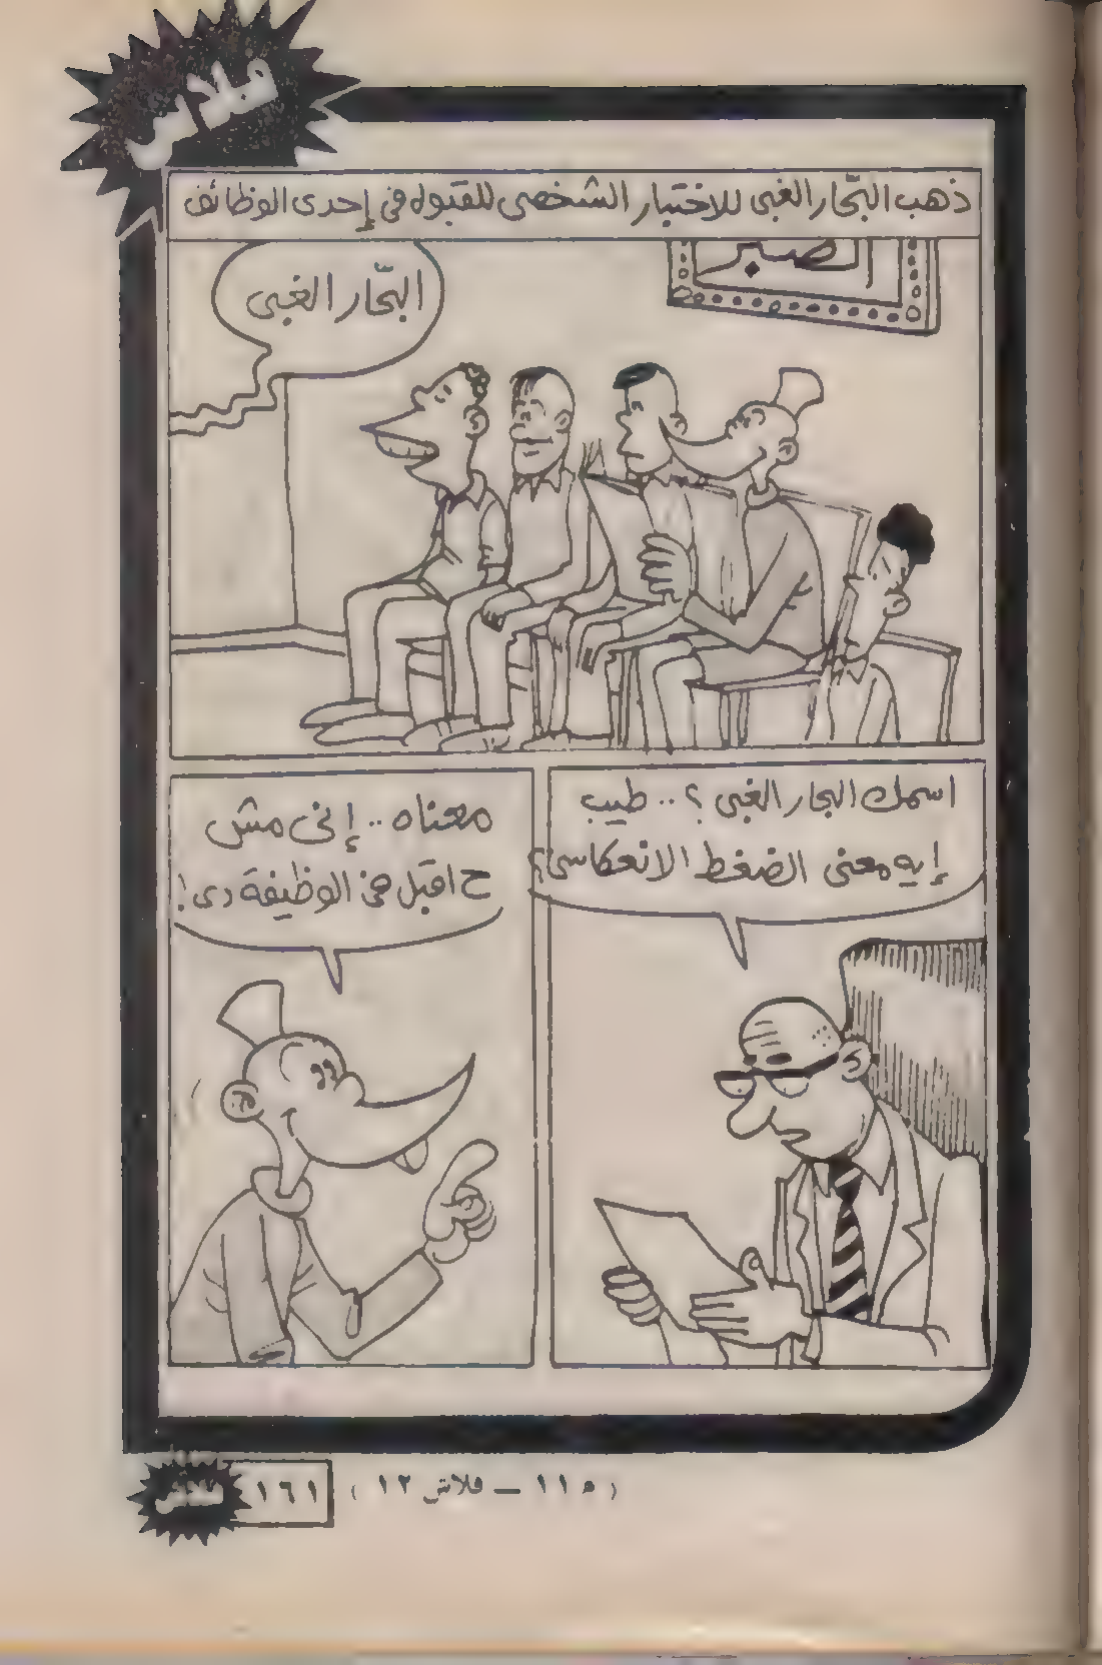 فلاش
ذهب البحّار الغبى للاختبار الشخصى للقبول فى إحدى الوظائف
الصبر
البحّار الغبى
اسمك البحار الغبى ؟ .. طيب
إيه معنى الضغط الانعكاسى؟
معناه .. إنى مش
ح اقبل فى الوظيفة دى!
(م ١١ — فلاش ١٢)
١٦١
فلاش